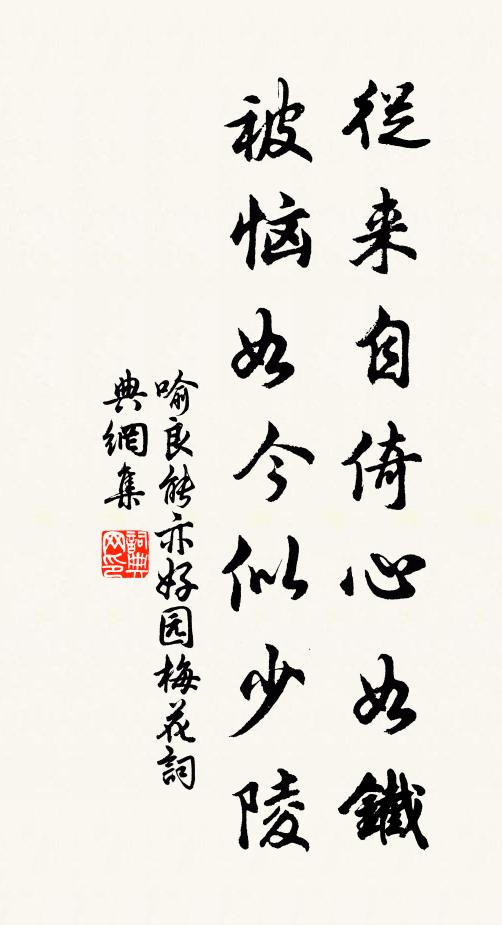 從来自倚心如鐵
被恼如今似少陵
喻良能亦好园梅花詞
典網集
詞典
网印